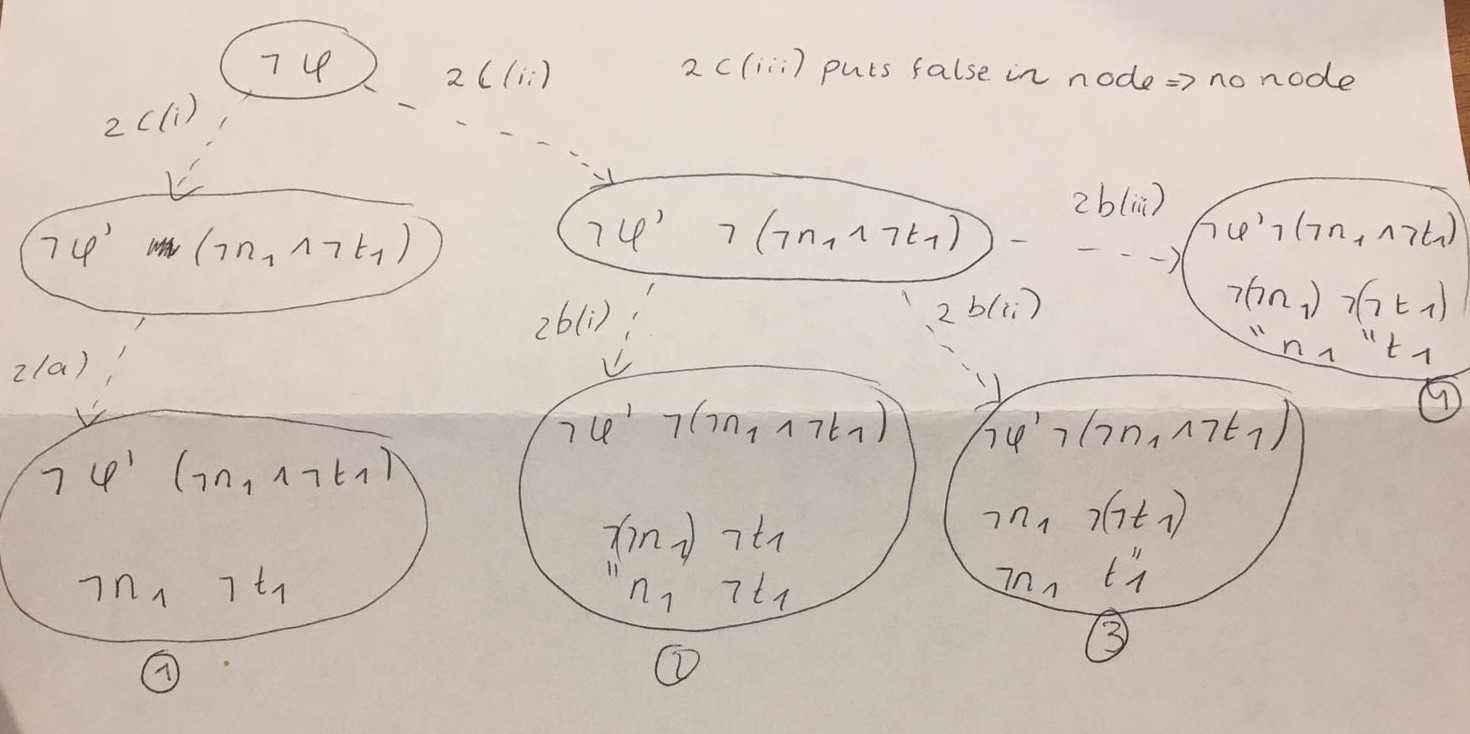 ¬φ
2c(i)
2c(ii)
2c(iii) puts false in node => no node
¬φ' (¬n₁ ∧ ¬t₁)
¬φ' ¬(¬n₁ ∧ ¬t₁)
2b(iii)
¬φ' ¬(¬n₁ ∧ ¬t₁)
¬(¬n₁) ¬(¬t₁)
" n₁ " t₁
④
2(a)
2b(i)
2b(ii)
¬φ' (¬n₁ ∧ ¬t₁)
¬n₁ ¬t₁
①
¬φ' ¬(¬n₁ ∧ ¬t₁)
¬(¬n₁) ¬t₁
" n₁ ¬t₁
¬φ' ¬(¬n₁ ∧ ¬t₁)
¬n₁ ¬(¬t₁)
¬n₁ t₁"
③